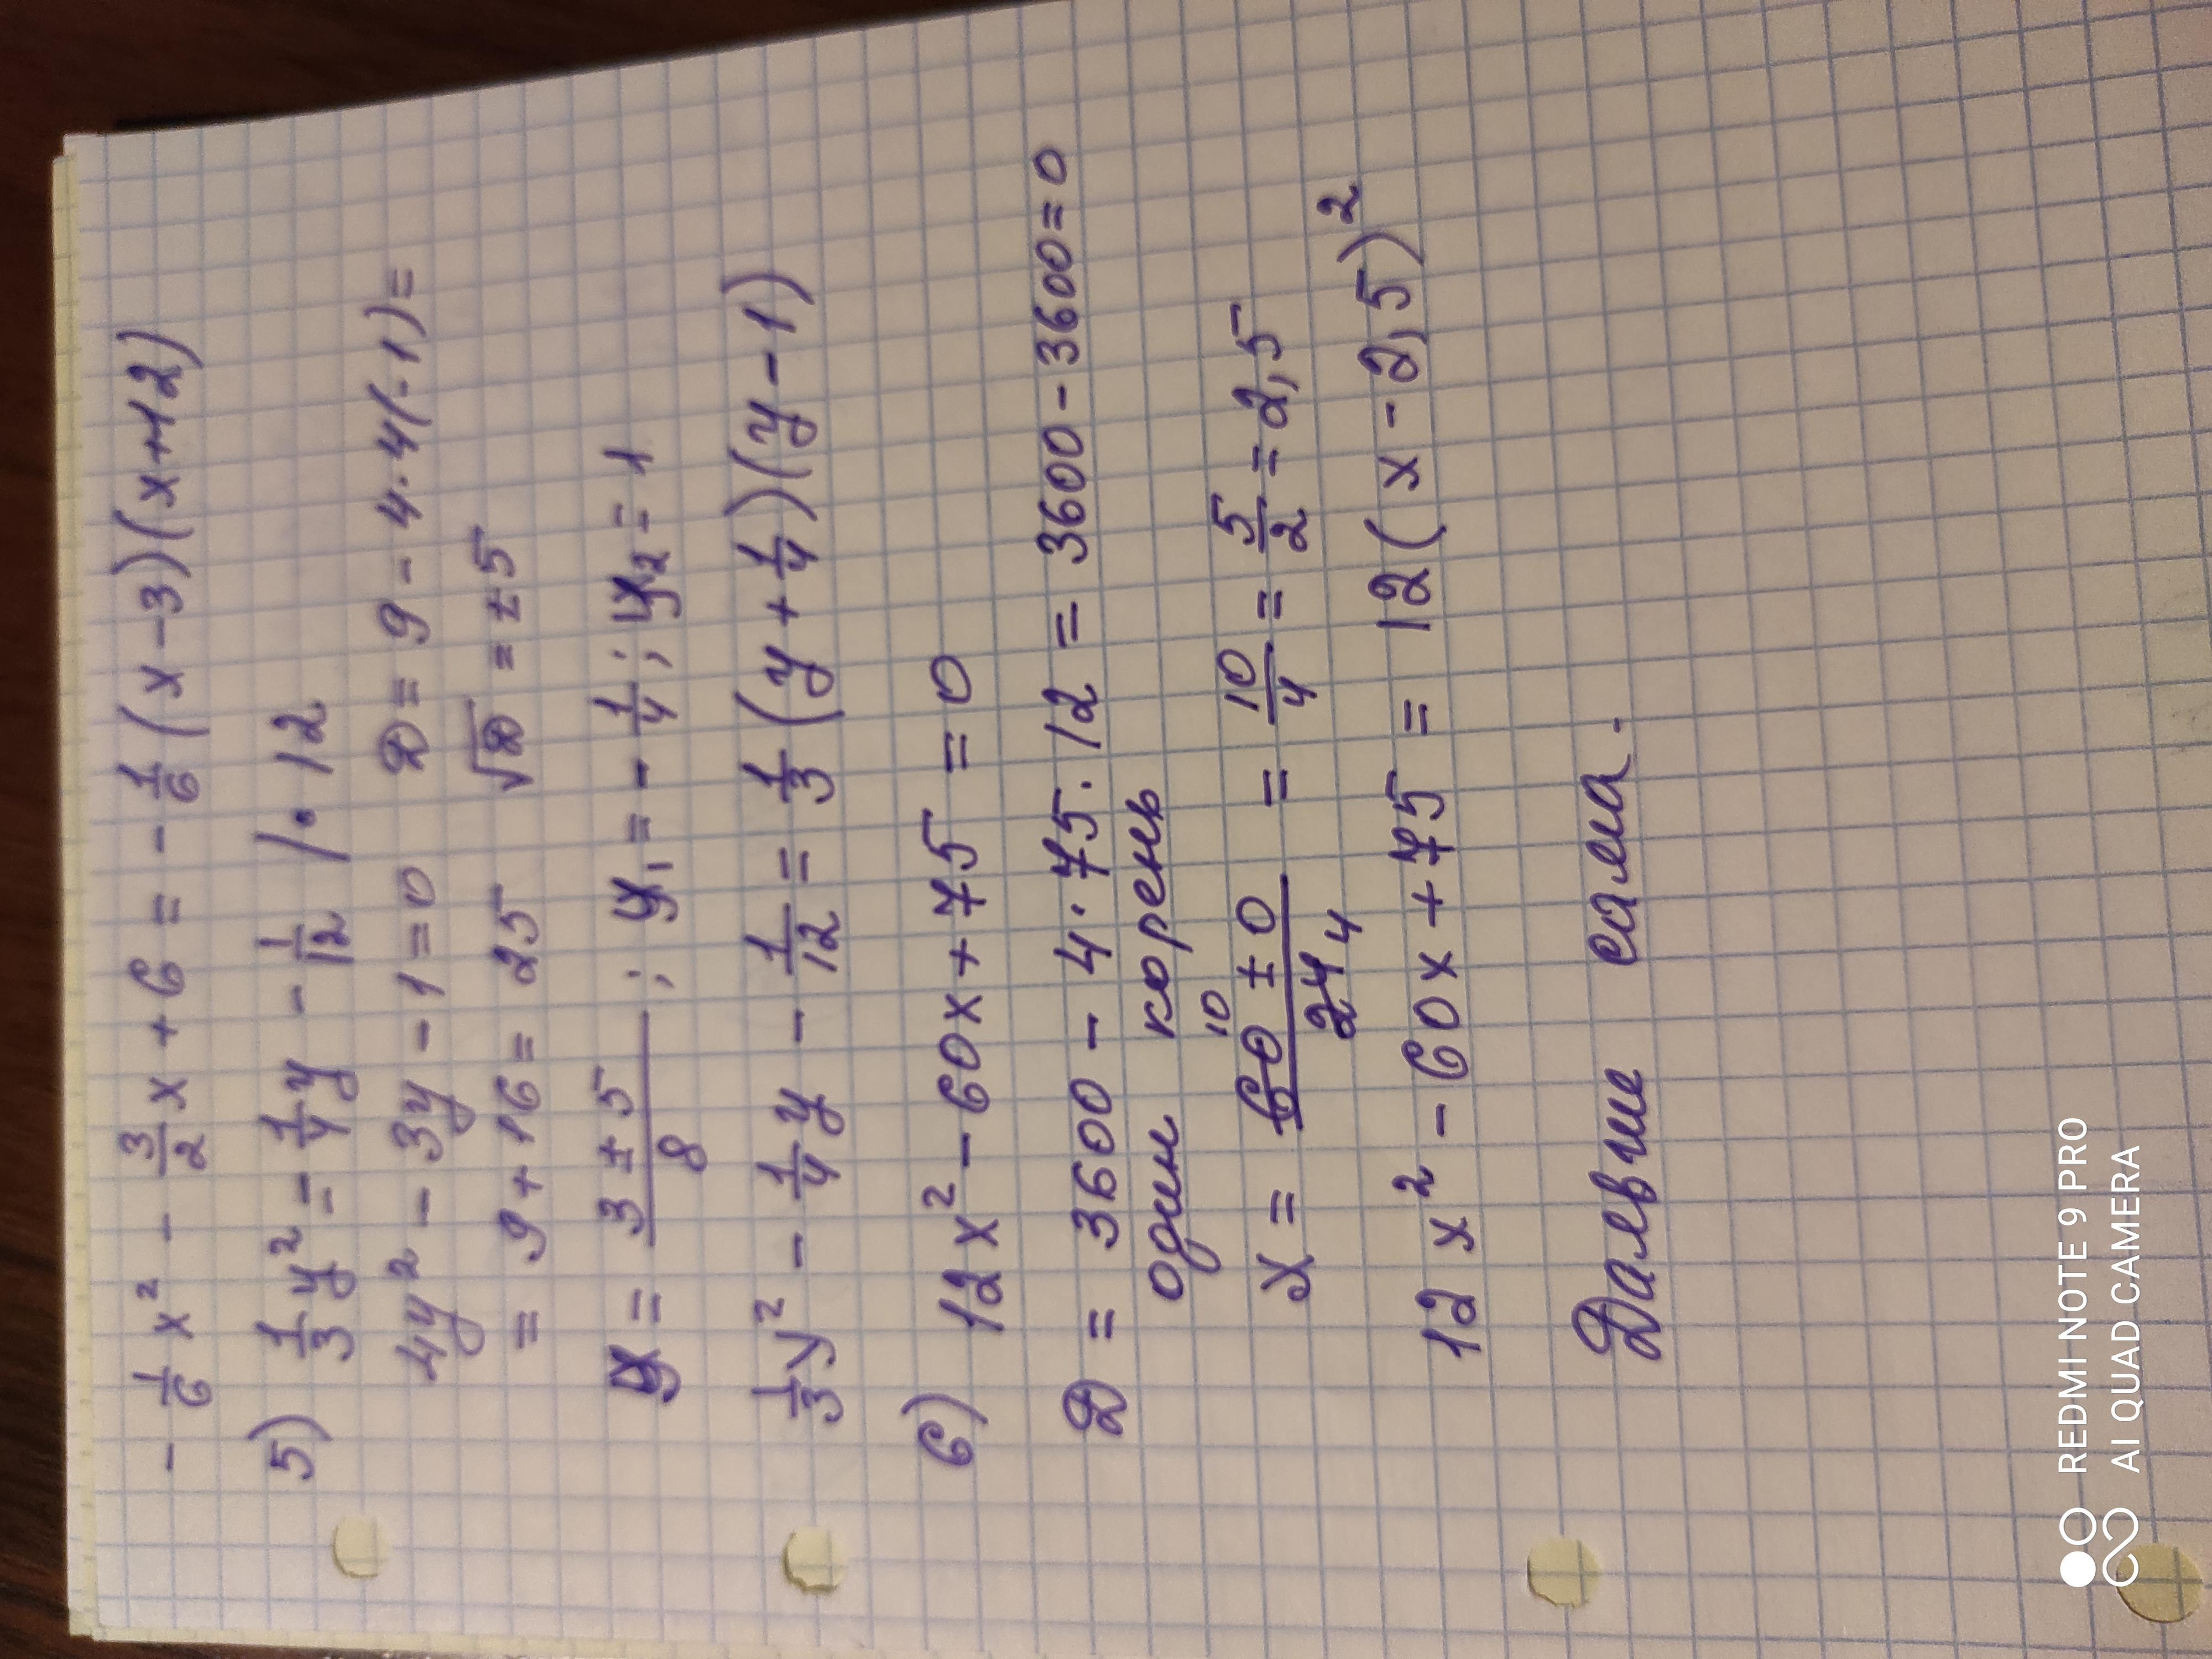 - 1/6 x² - 3/2 x + 6 = - 1/6 (x - 3)(x + 12)
5) 1/3 y² = 1/4 y - 1/12 / · 12
4y² - 3y - 1 = 0 D = 9 - 4 · 4(-1) =
= 9 + 16 = 25 √D = ± 5
y = (3 ± 5)/8 ; y₁ = - 1/4 ; y₂ = 1
1/3 y² - 1/4 y - 1/12 = 1/3 (y + 1/4)(y - 1)
6) 12x² - 60x + 75 = 0
D = 3600 - 4 · 75 · 12 = 3600 - 3600 = 0
один корень
10
x = (60 ± 0)/24 4 = 10/4 = 5/2 = 2,5
12x² - 60x + 75 = 12(x - 2,5)²
Дальше сама.
REDMI NOTE 9 PRO
AI QUAD CAMERA